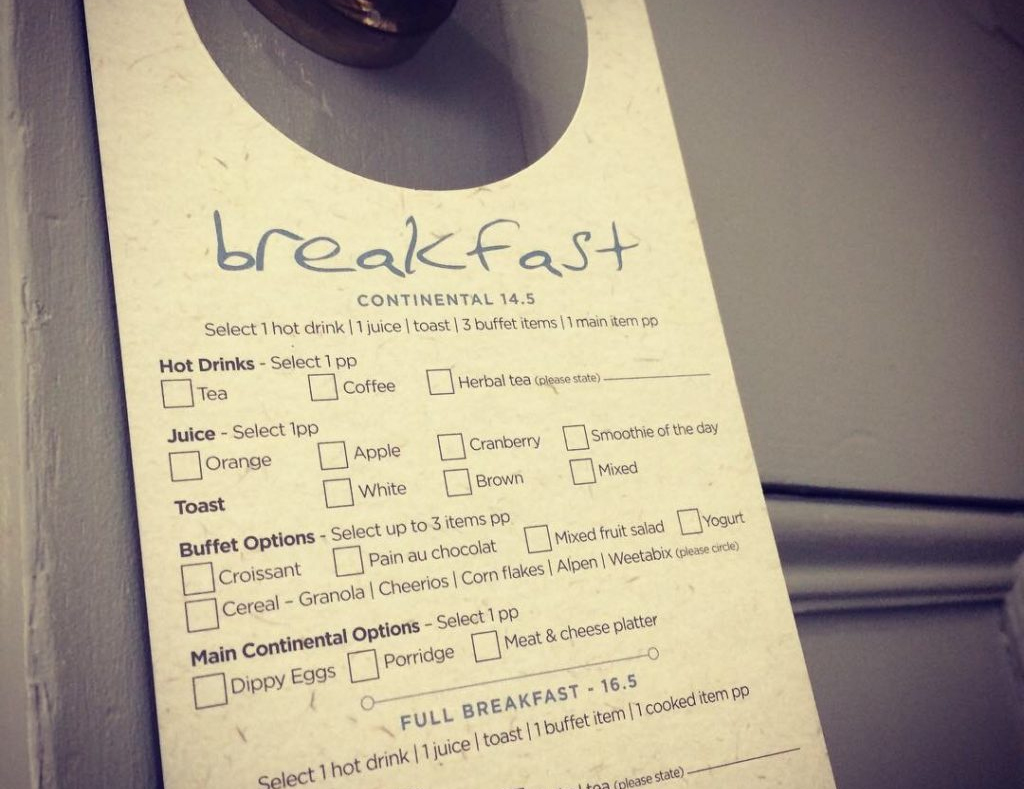 breakfast
CONTINENTAL 14.5
Select 1 hot drink | 1 juice | toast | 3 buffet items | 1 main item pp
Hot Drinks - Select 1 pp
Tea Coffee Herbal tea (please state)
Juice - Select 1pp
Orange Apple Cranberry Smoothie of the day
Toast White Brown Mixed
Buffet Options - Select up to 3 items pp
Croissant Pain au chocolat Mixed fruit salad Yogurt
Cereal – Granola | Cheerios | Corn flakes | Alpen | Weetabix (please circle)
Main Continental Options - Select 1 pp
Dippy Eggs Porridge Meat & cheese platter
FULL BREAKFAST - 16.5
Select 1 hot drink | 1 juice | toast | 1 buffet item | 1 cooked item pp
tea (please state)